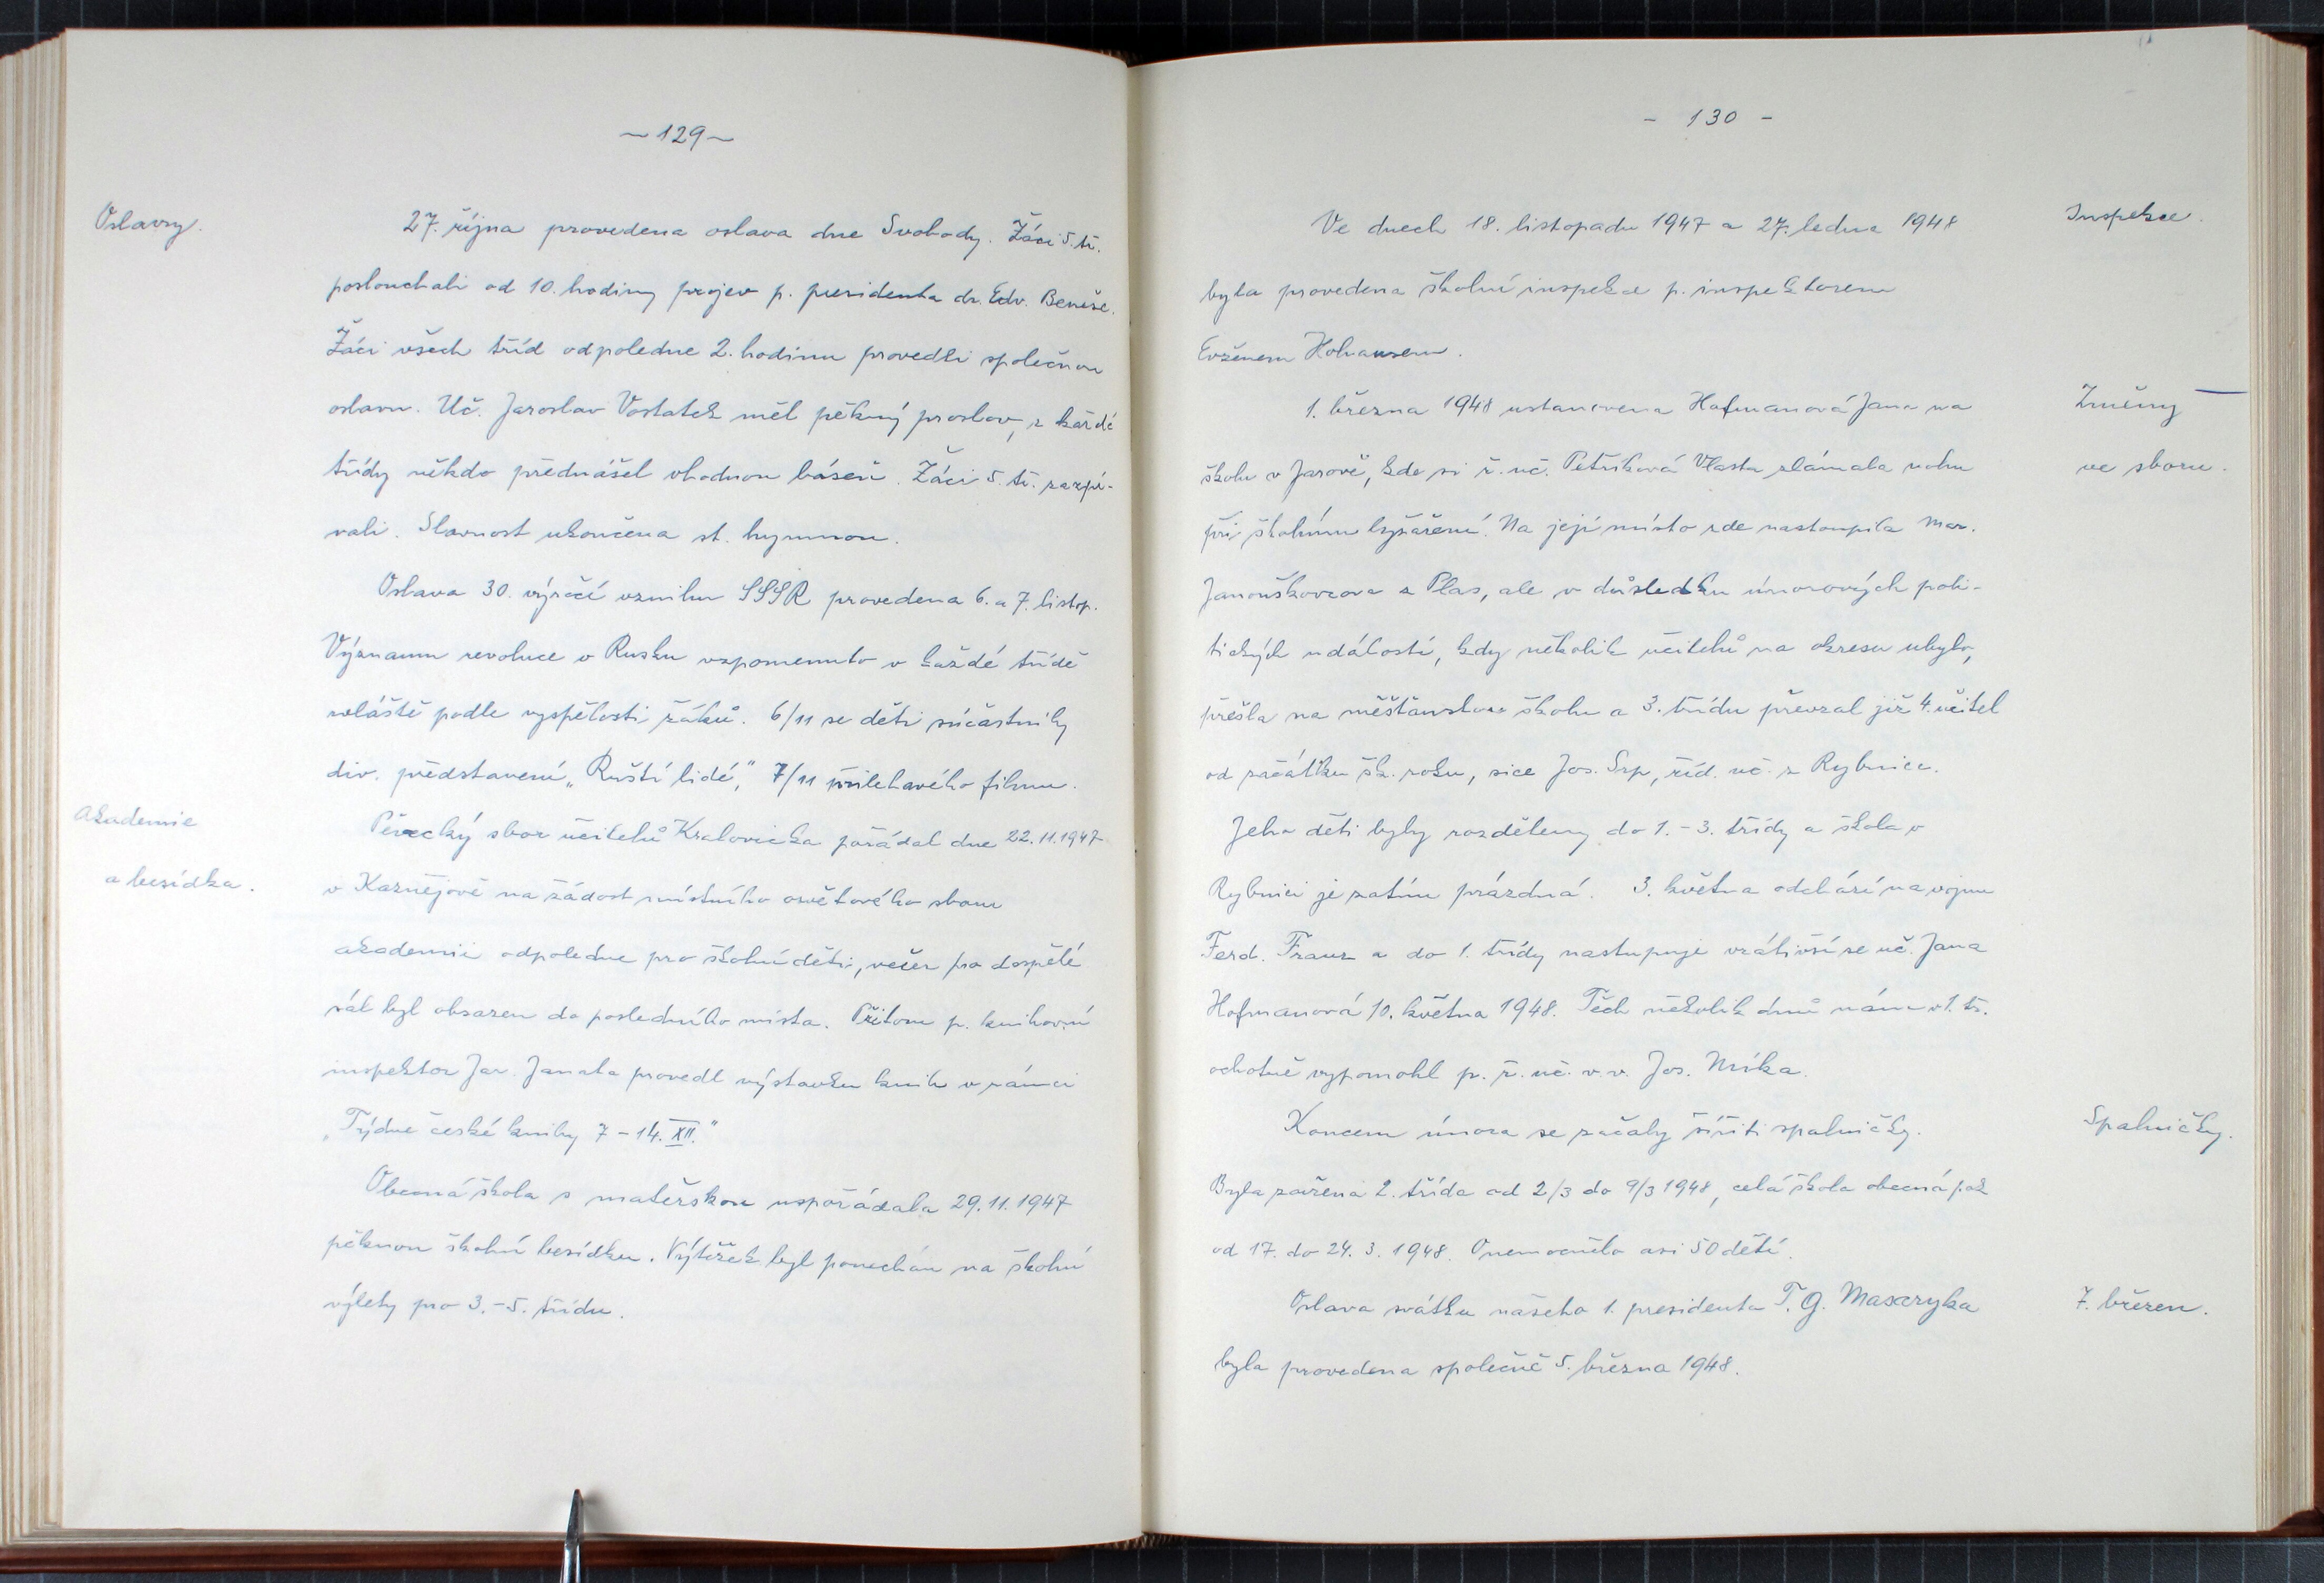 ~ 129 ~
Oslavy.
27. října provedena oslava dne Svobody. Žáci 5. tř.
poslouchali od 10. hodiny projev p. presidenta dr. Edv. Beneše.
Žáci všech tříd odpoledne 2. hodinu provedli společnou
oslavu. Uč. Jaroslav Vostatek měl pěkný proslov, z každé
třídy někdo přednášel vhodnou báseň. Žáci 5. tř. zazpí-
vali. Slavnost ukončena st. hymnou.
Oslava 30. výročí vzniku SSSR provedena 6. a 7. listop.
Významu revoluce v Rusku vzpomenuto v každé třídě
zvláště podle vyspělosti žáků. 6/11 se děti súčastnily
div. představení „Ruští lidé," 7/11 přiléhavého filmu.
Akademie
a besídka.
Pěvecký sbor učitelů Kralovicka pořádal dne 22. 11. 1947
v Kaznějově na žádost místního osvětového sboru
akademii odpoledne pro školní děti, večer pro dospělé
sál byl obsazen do posledního místa. Přitom p. knihovní
inspektor Jar. Janata provedl výstavku knih v rámci
„Týdne české knihy 7 - 14. XII."
Obecná škola s mateřskou uspořádala 29. 11. 1947
pěknou školní besídku. Výtěžek byl ponechán na školní
výlety pro 3. - 5. třídu.
- 130 -
Inspekce.
Ve dnech 18. listopadu 1947 a 27. ledna 1948
byla provedena školní inspekce p. inspektorem
Evženem Holvausem.
Změny
ve sboru.
1. března 1948 ustanovena Hofmanová Jana na
školu v Jarově, kde si ř. uč. Petříková Vlasta zlámala nohu
při školním lyžaření. Na její místo zde nastoupila Mar.
Janouškovcova z Plas, ale v důsledku únorových poli-
tických událostí, kdy několik učitelů na okresu ubylo,
přešla na měšťanskou školu a 3. třídu převzal již 4. učitel
od začátku šk. roku, sice Jos. Srp, říd. uč. z Rybnice.
Jeho děti byly rozděleny do 1. - 3. třídy a škola v
Rybnici je zatím prázdná. 3. května odchází na vojnu
Ferd. Franz a do 1. třídy nastupuje vrátivší se uč. Jana
Hofmanová 10. května 1948. Těch několik dnů nám v 1. tř.
ochotně vypomohl p. ř. uč. v. v. Jos. Míka.
Spalničky.
Koncem února se začaly šířiti spalničky.
Byla zavřena 2. třída od 2/3 do 9/3 1948, celá škola obecná pak
od 17. do 24. 3. 1948. Onemocnělo asi 50 dětí.
7. březen.
Oslava svátku našeho 1. presidenta T. G. Masaryka
byla provedena společně 5. března 1948.